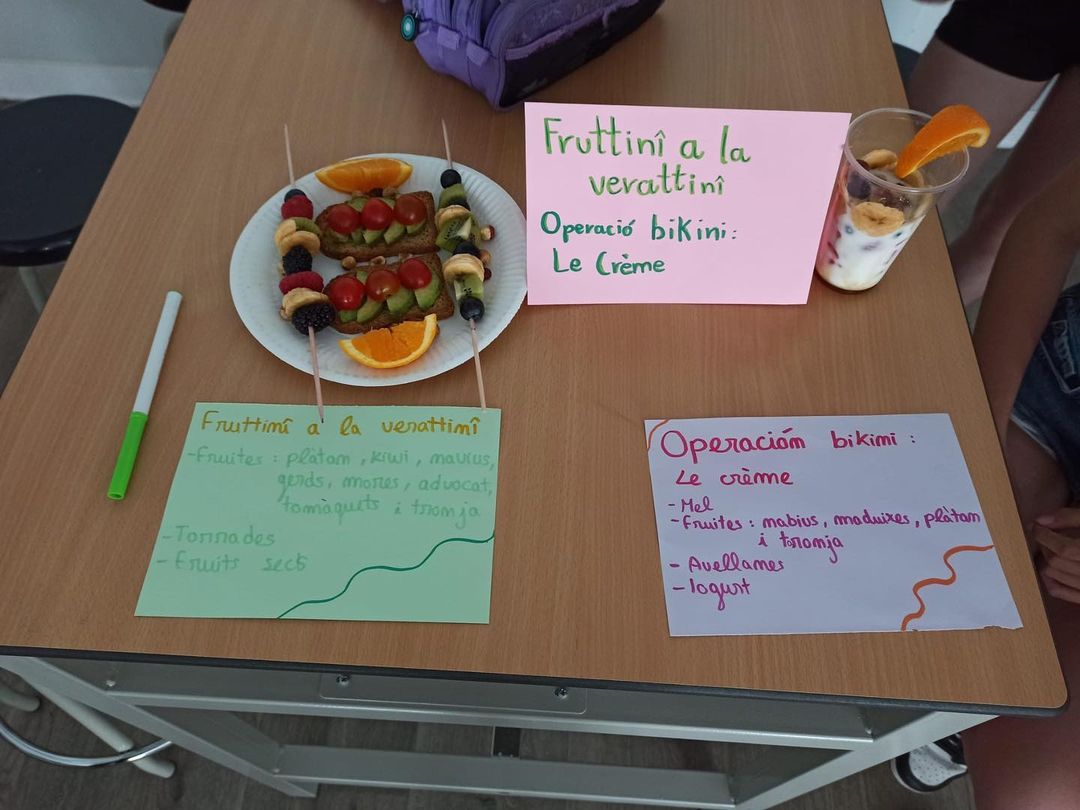 Fruttinî a la
verattinî
Operació bikini:
Le Crème
Fruttinî a la verattinî
-Fruites: plàtam, kiwi, mavius,
gerds, mores, advocat,
tomàquets i tronja
-Torrades
-Fruits secs
Operación bikini:
Le crème
-Mel
-Fruites: mabius, maduixes, plàtam
i taronja
-Avellanes
-Iogurt